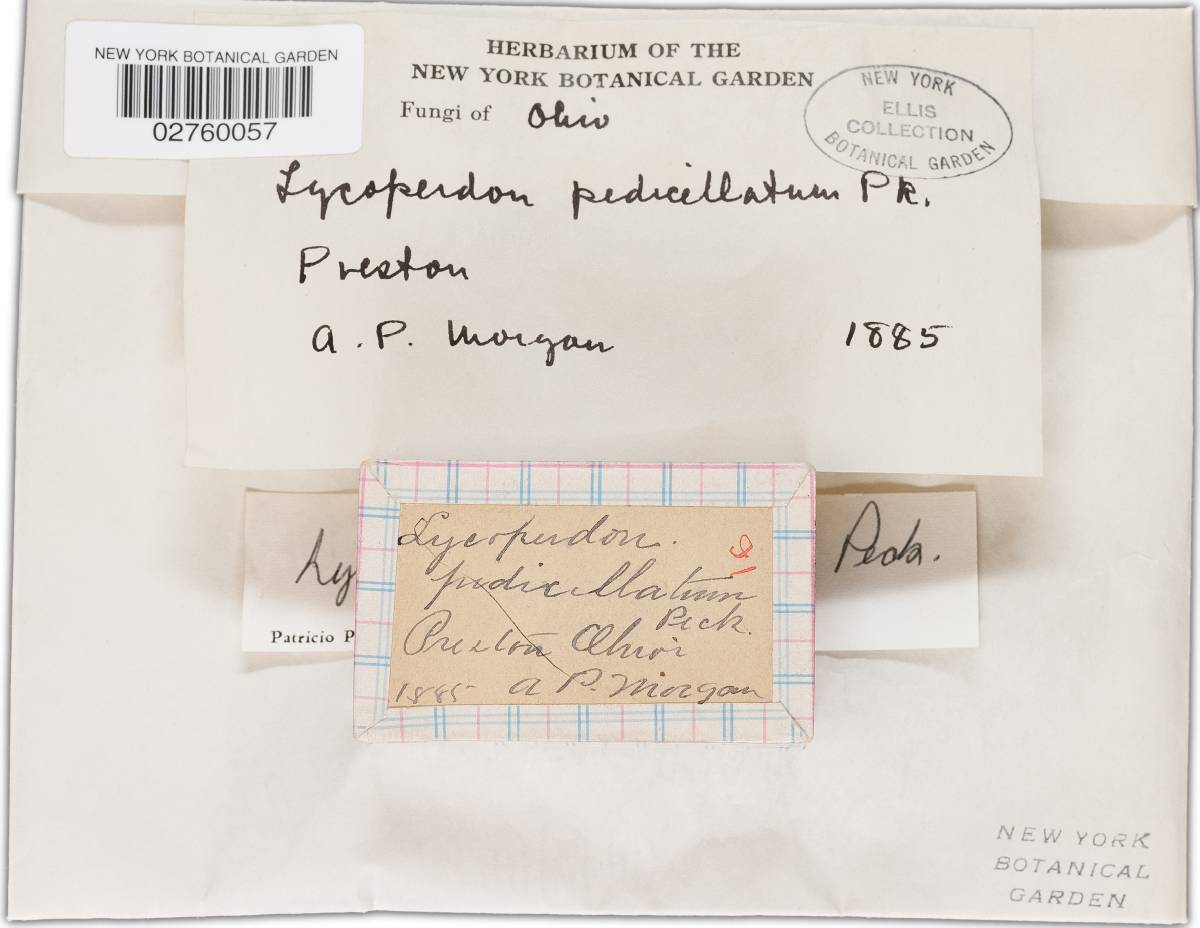 NEW YORK BOTANICAL GARDEN
02760057
HERBARIUM OF THE
NEW YORK BOTANICAL GARDEN
Fungi of Ohio
NEW YORK
ELLIS
COLLECTION
BOTANICAL GARDEN
Lycoperdon pedicellatum Pk.
Preston
A. P. Morgan 1885
Lycoperdon.
pedicellatum
Peck.
Preston Ohio
1885 A P. Morgan
Ly Peck.
Patricio P
NEW YORK
BOTANICAL
GARDEN